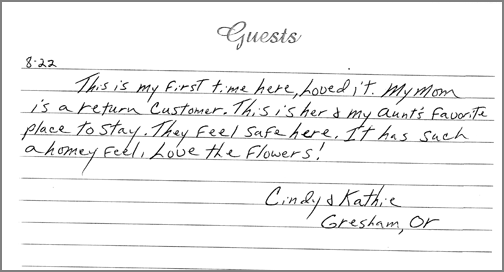 Guests
8:22
This is my first time here, Loved it. My Mom
is a return Customer. This is her & my Aunt's Favorite
place to stay. They Feel Safe here. It has such
a homey Feel, Love the Flowers!
Cindy & Kathie
Gresham, Or